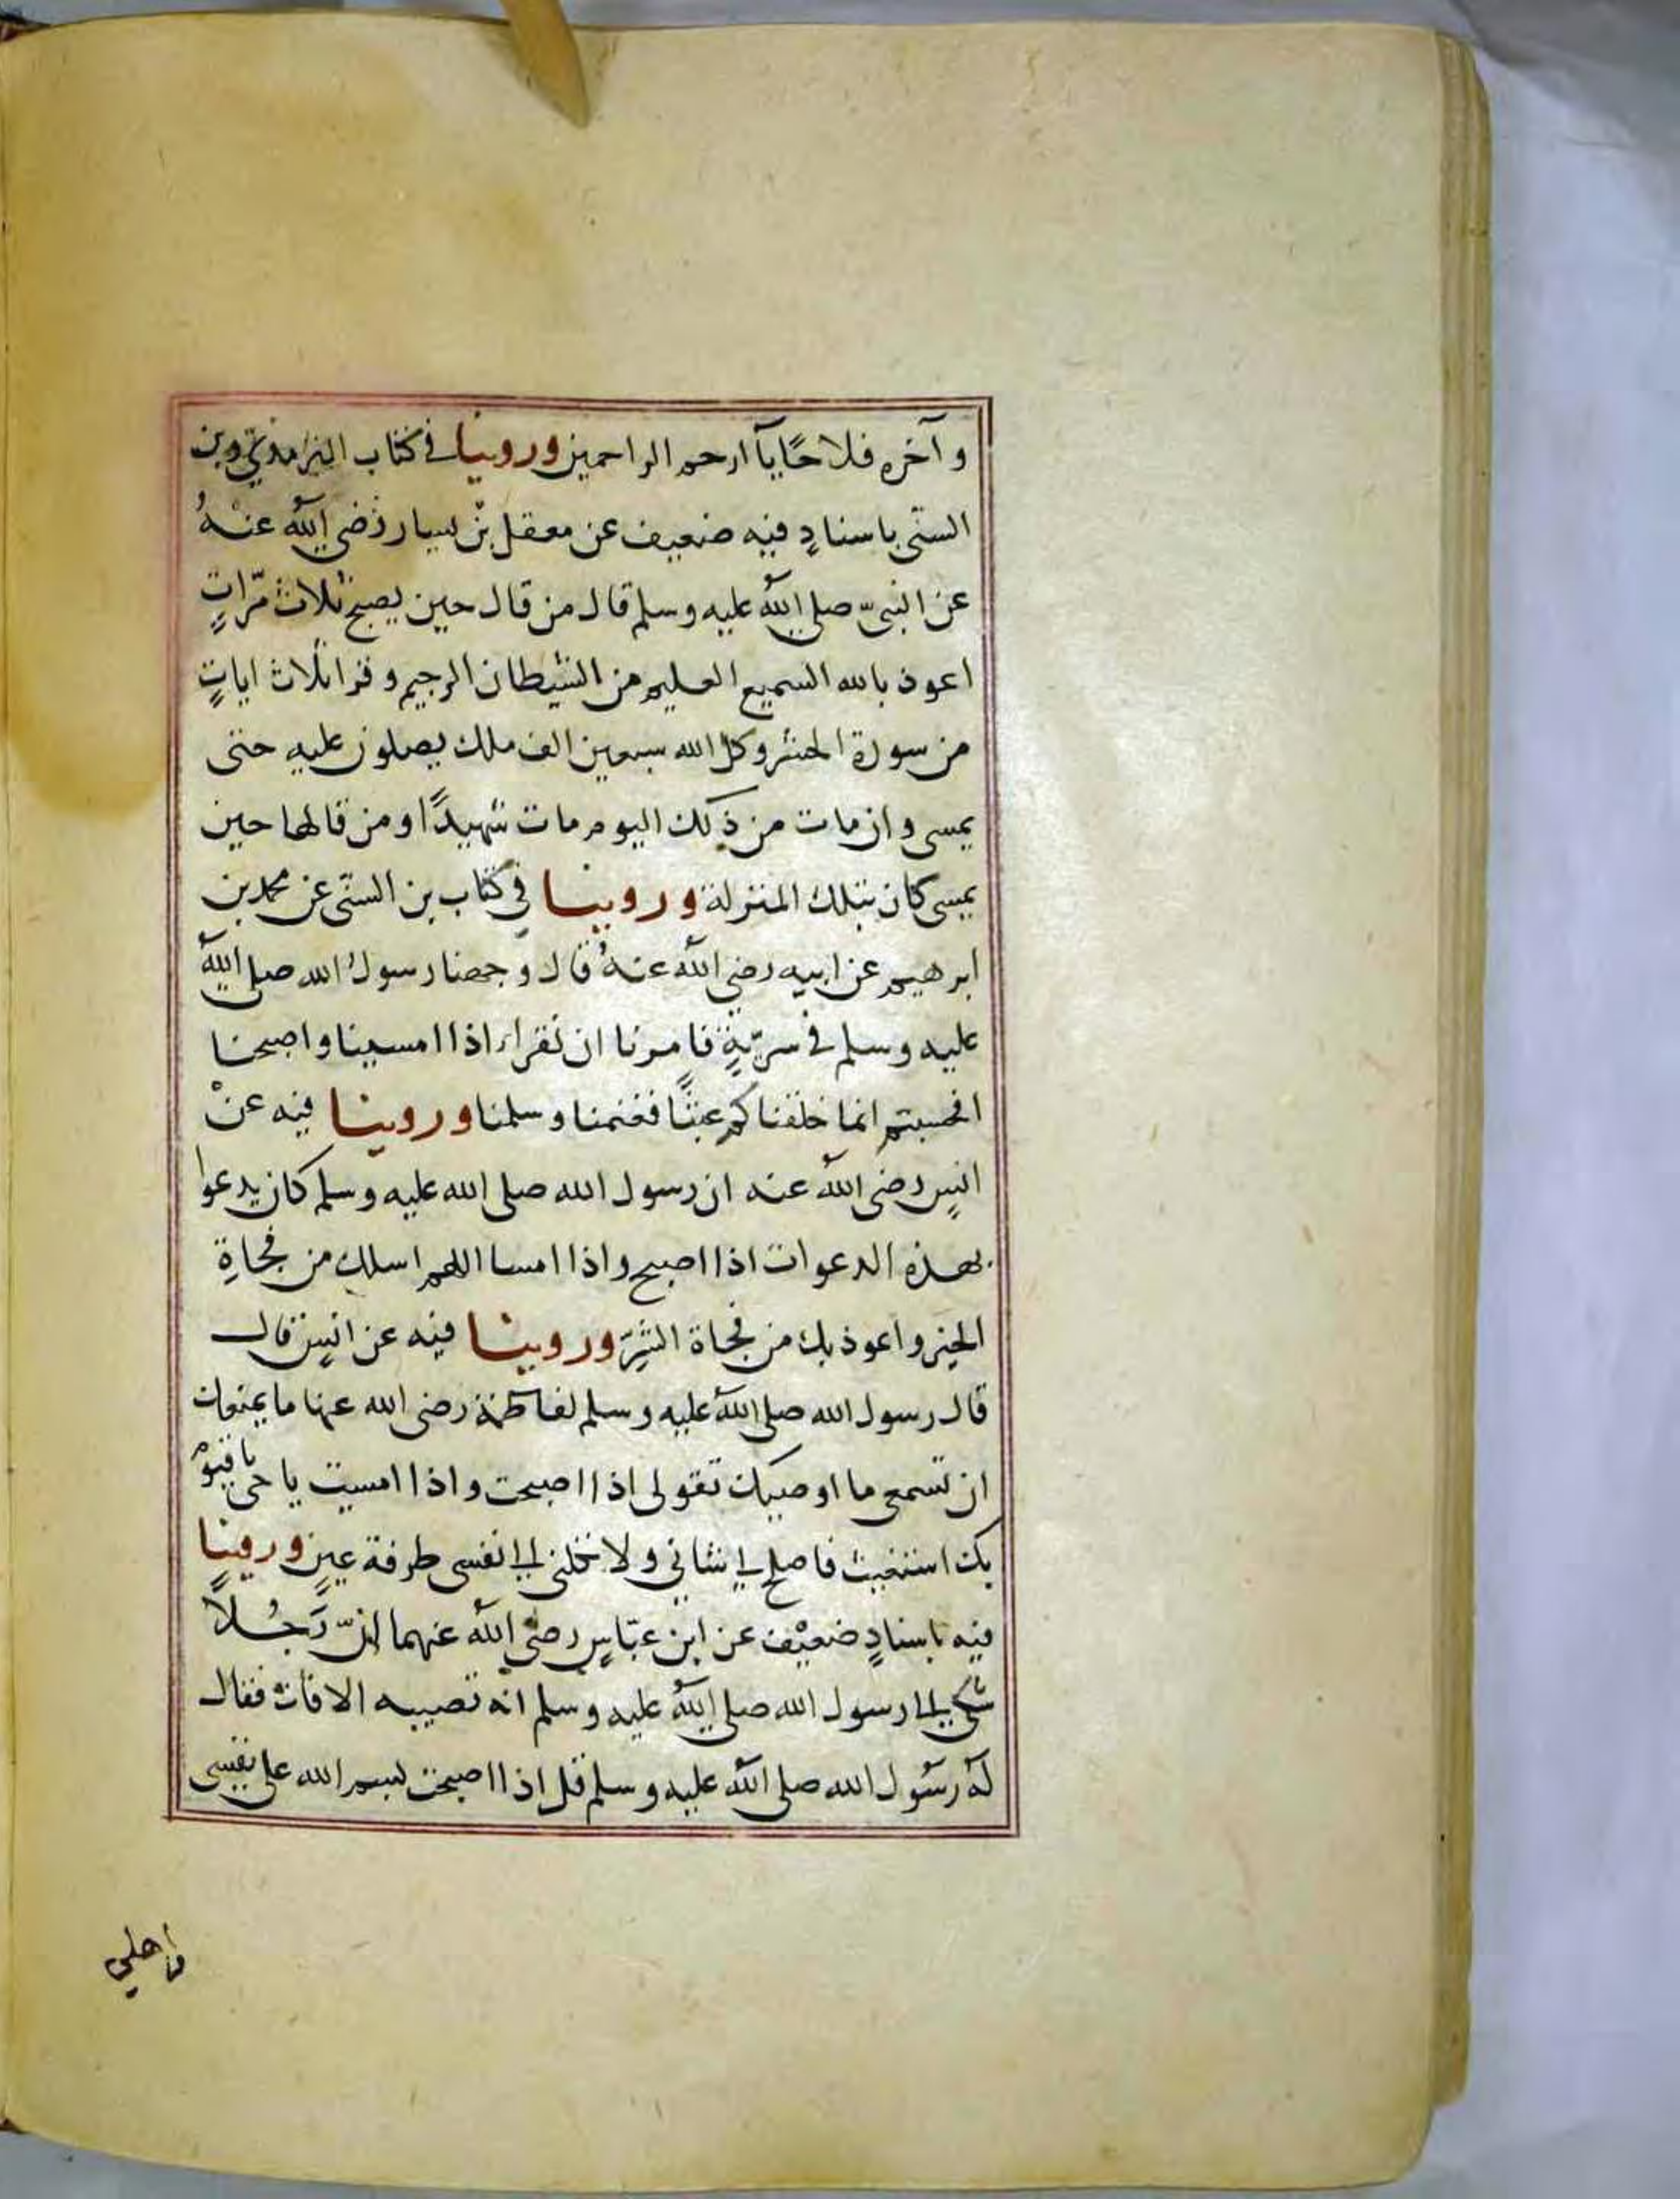 وآخره فلاحًا يآ ارحم الراحمين وروينا في كتاب الترمذي وبن
السنّى باسنادٍ فيه ضعيف عن معقل بْن يسار رضي اللّٰه عنهُ
عن النبىّ صلى اللّٰه عليه وسلم قال من قال حين يصبح ثلاث مرّاتٍ
اعوذ بالله السميع العليم من الشيطان الرجيم وقرا ثلاث اياتٍ
من سورة الحشر وكل الله سبعين الف ملك يصلون عليه حتى
يمسى وان مات من ذلك اليوم مات شهيدًا ومن قالها حين
يمسى كان بتلك المنزلة وروينا في كتاب بن السنّى عن محمد بن
ابرهيم عن ابيه رضي اللّٰه عنهُ قال وجهنا رسولُ الله صلى اللّٰه
عليه وسلم في سريّةٍ فامرنا ان نقراء اذا امسينا واصبحنا
افحسبتم انما خلقناكم عبثًا فغنمنا وسلمنا وروينا فيه عنْ
انسٍ رضى اللّٰه عنه ان رسول الله صلى الله عليه وسلم كان يدعوا
بهذه الدعوات اذا اصبح واذا امسا اللهم اسلك من فجاةِ
الخير واعوذ بك من فجاة الشرّ وروينا فيه عن انسٍ قال
قال رسول الله صلى اللّٰه عليه وسلم لفاطمة رضى الله عنها ما يمنعك
ان تسمعى ما اوصيك تقولى اذا اصبحت واذا امسيت يا حى يا قيومُ
بك استغيث فاصلح لي شاني ولا تكلنى الى نفسى طرفة عينٍ وروينا
فيه باسنادٍ ضعيْف عن ابن عبّاسٍ رضى اللّٰه عنهما انّ رَجُلاً
شكى الى رسول الله صلى اللّٰه عليه وسلم انه تصيبه الافات فقال
لهُ رسُول الله صلى اللّٰه عليه وسلم قل اذا اصبحت بسم الله على نفسى
واهلي